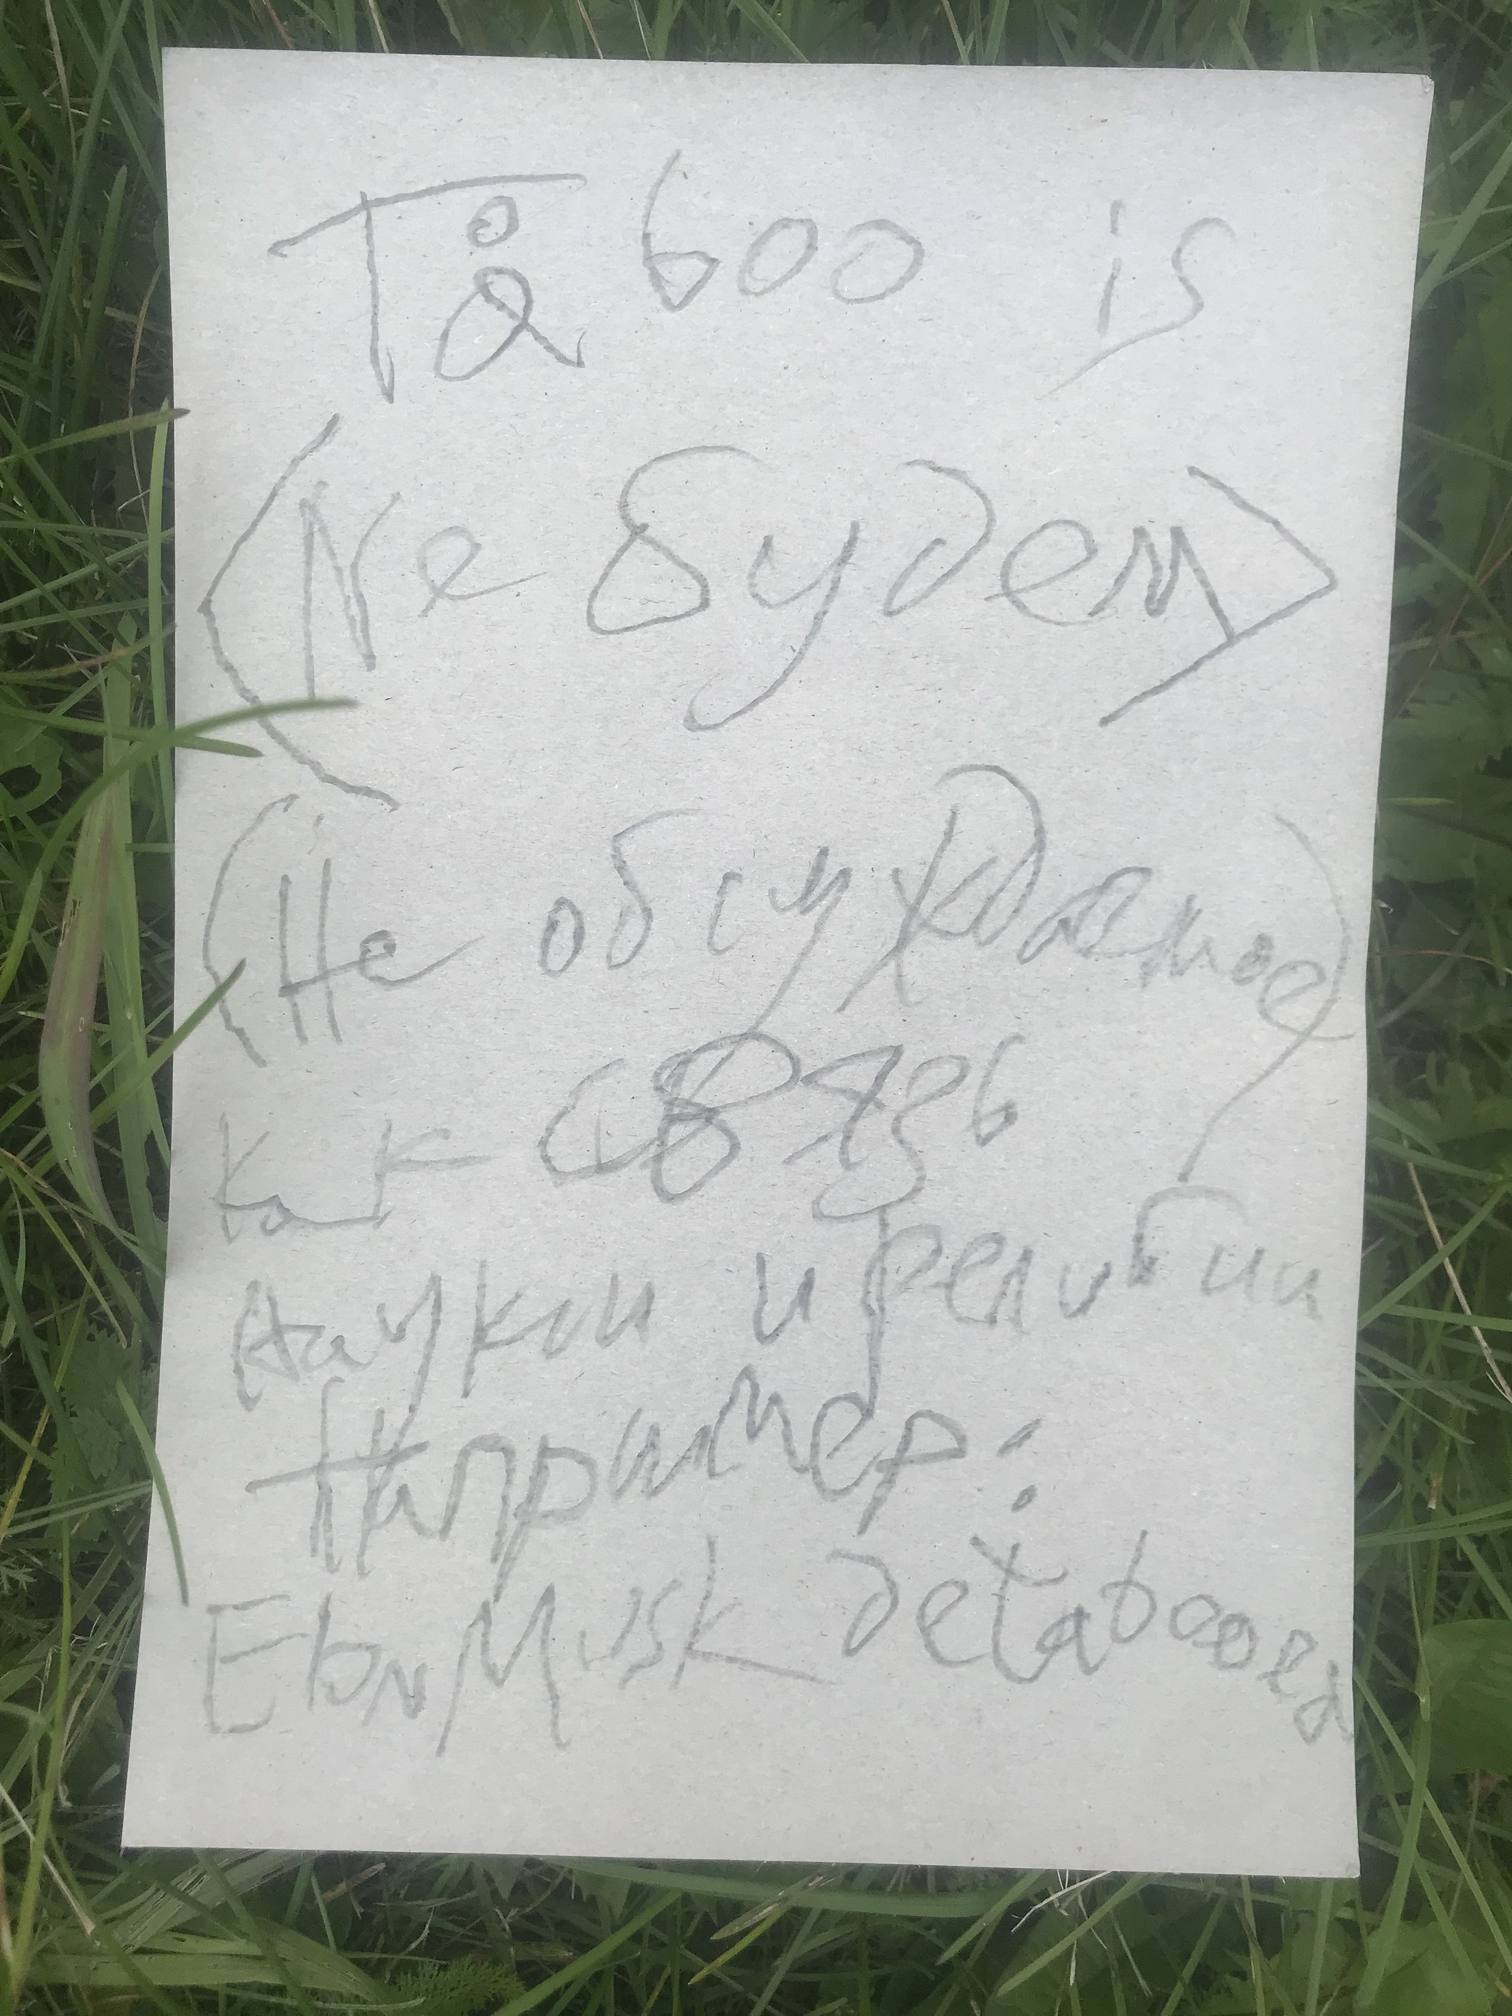 Tåboo is
(Ne будем)
(Не обсуждаемое)
как связь
Наукои и религии
Например:
Elon Musk detabooed